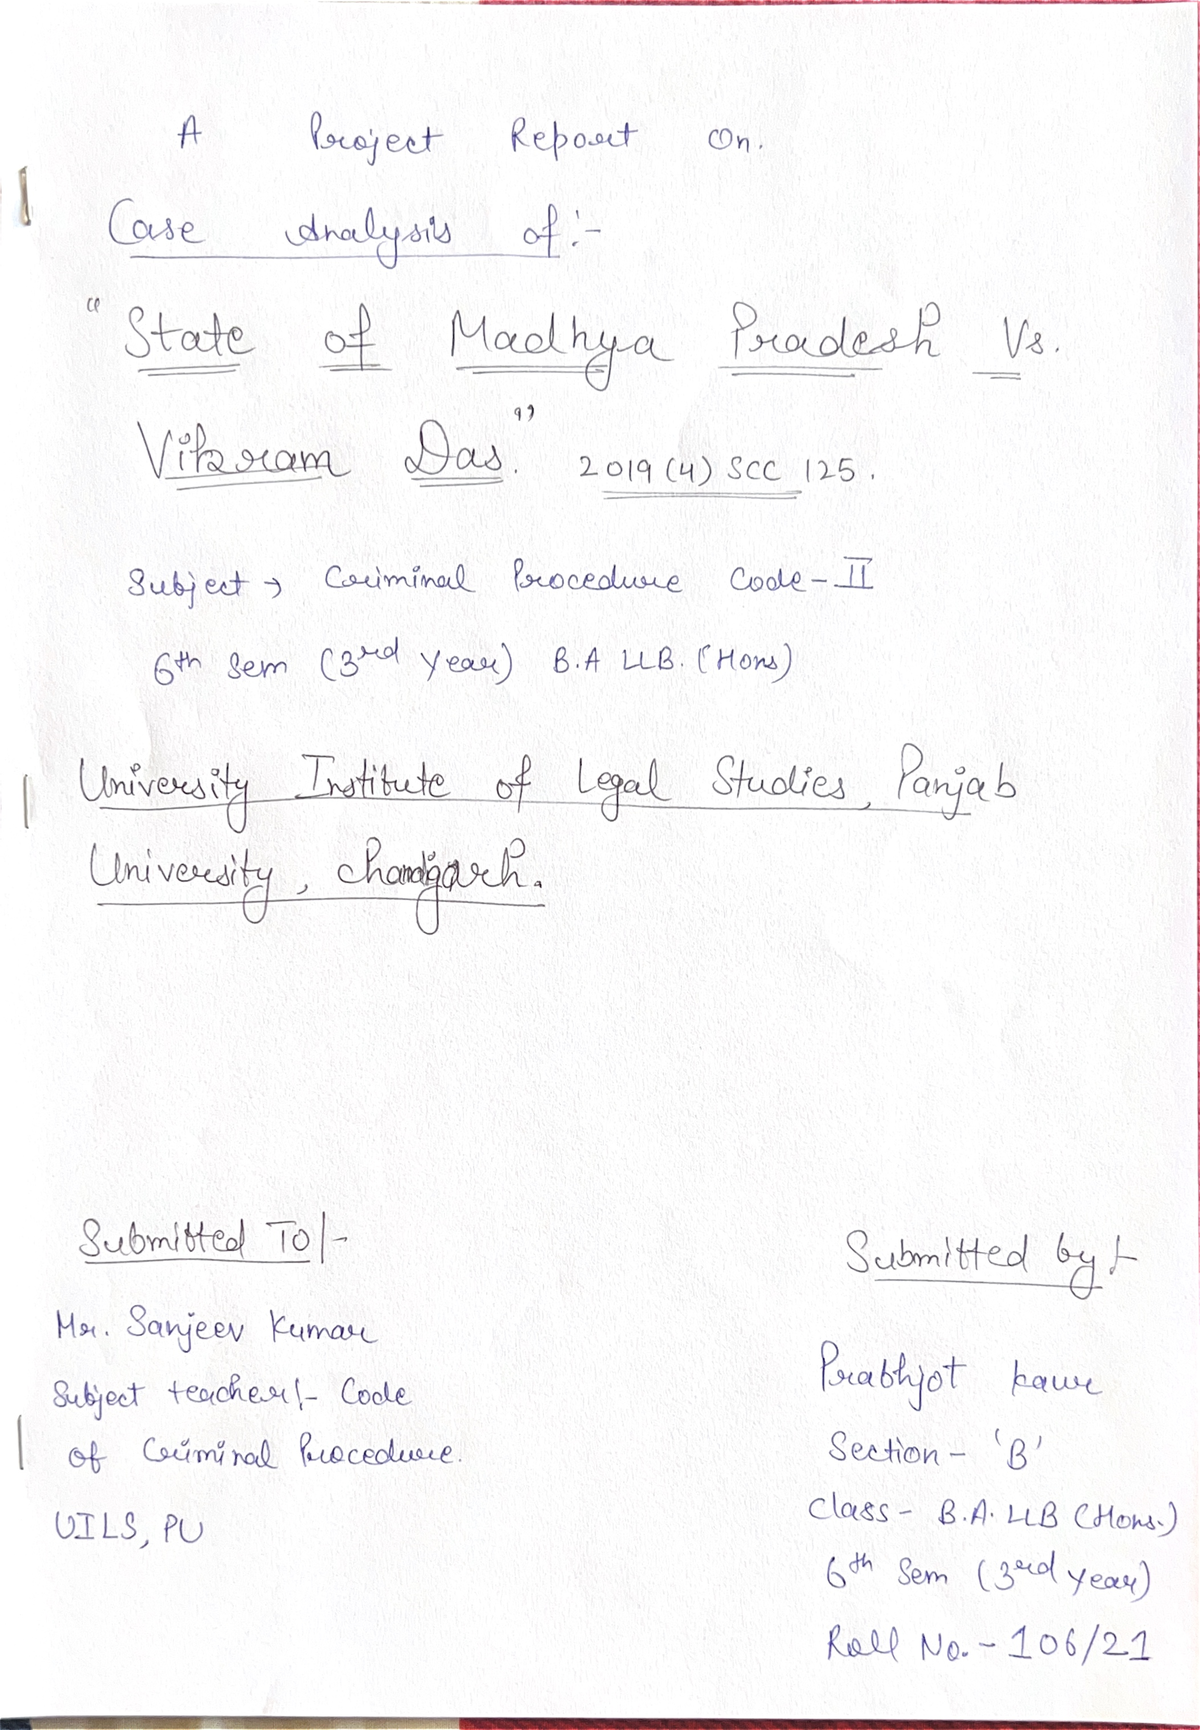 A Project Report On.
Case Analysis of :-
"State of Madhya Pradesh Vs.
Vikram Das." 2019 (4) SCC 125.
Subject → Criminal Procedure Code - II
6th Sem (3rd Year) B.A LLB. (Hons)
University Institute of Legal Studies, Panjab
University, Chandigarh.
Submitted To/-
Mr. Sanjeev Kumar
Subject teacher/- Code
of Criminal Procedure.
UILS, PU
Submitted by :-
Prabhjot kaur
Section - 'B'
Class - B.A. LLB (Hons.)
6th Sem (3rd year)
Roll No. - 106/21